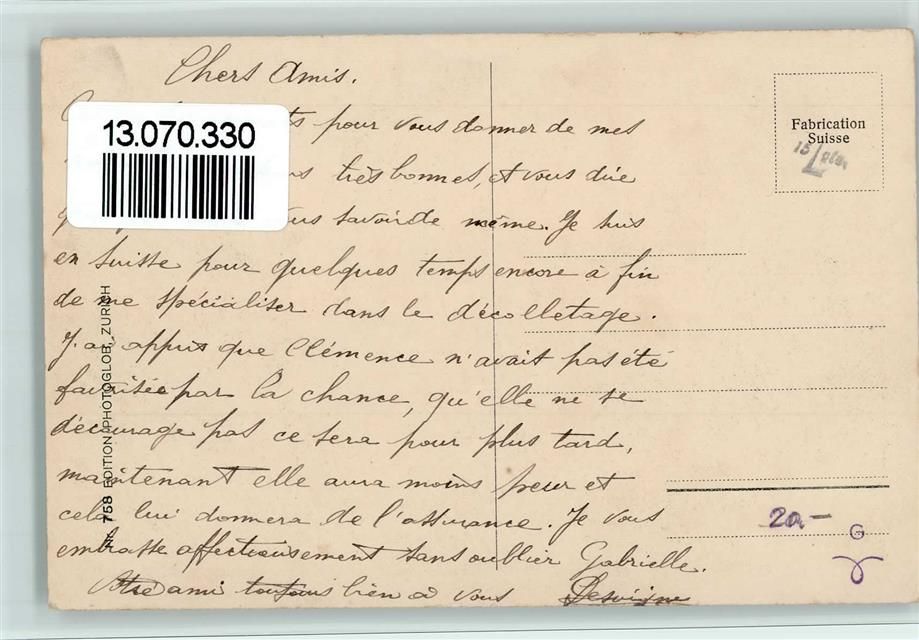 Chers Amis.
13.070.330
pour vous donner de mes
très bonnes, et vous dire
savoir de même. Je suis
en Suisse pour quelques temps encore à fin
de me spécialiser dans le décolletage.
J'ai appris que Clémence n'avait pas été
favorisée par la chance, qu'elle ne se
décourage pas ce sera pour plus tard,
maintenant elle aura moins peur et
cela lui donnera de l'assurance. Je vous
embrasse affectieusement sans oublier Gabrielle.
Votre ami toujours bien à vous
Fabrication
Suisse
758 EDITION PHOTOGLOB, ZURICH
20-
G